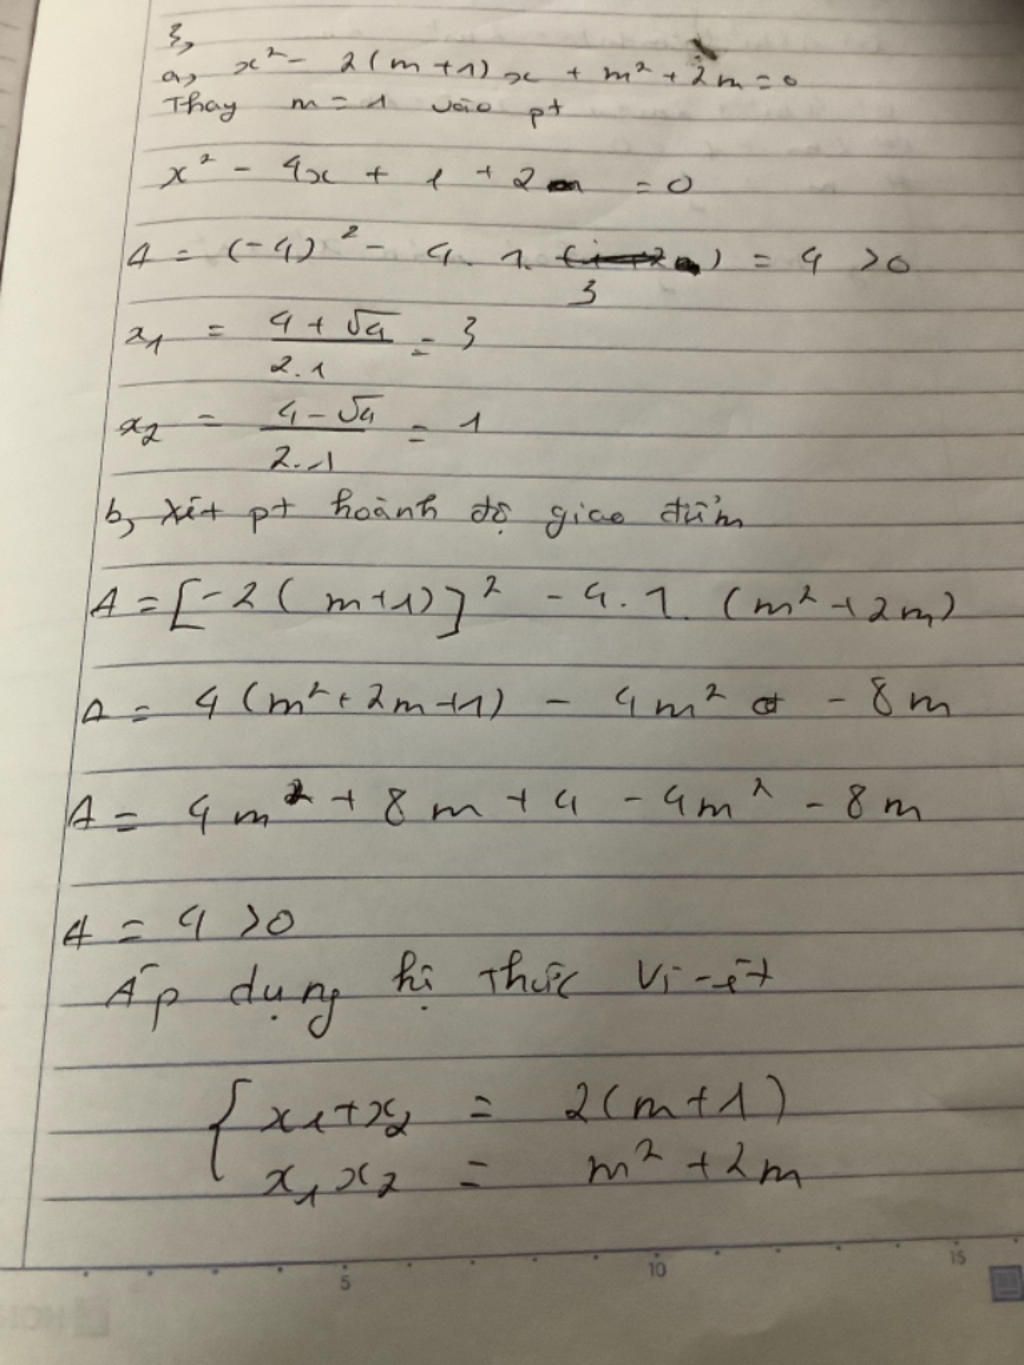 3,
a, x² - 2(m+1)x + m² + 2m = 0
Thay m = 1 vào pt
x² - 4x + 1 + 2 = 0
Δ = (-4)² - 4.1.3 = 4 >0
x₁ = (4+√4)/(2.1) = 3
x₂ = (4-√4)/(2.1) = 1
b, xét pt hoành độ giao điểm
Δ = [-2(m+1)]² - 4.1.(m²+2m)
Δ = 4(m²+2m+1) - 4m² - 8m
Δ = 4m² + 8m + 4 - 4m² - 8m
Δ = 4 >0
Áp dụng hệ thức Vi-ét
{ x₁+x₂ = 2(m+1)
x₁x₂ = m²+2m
5 10 15